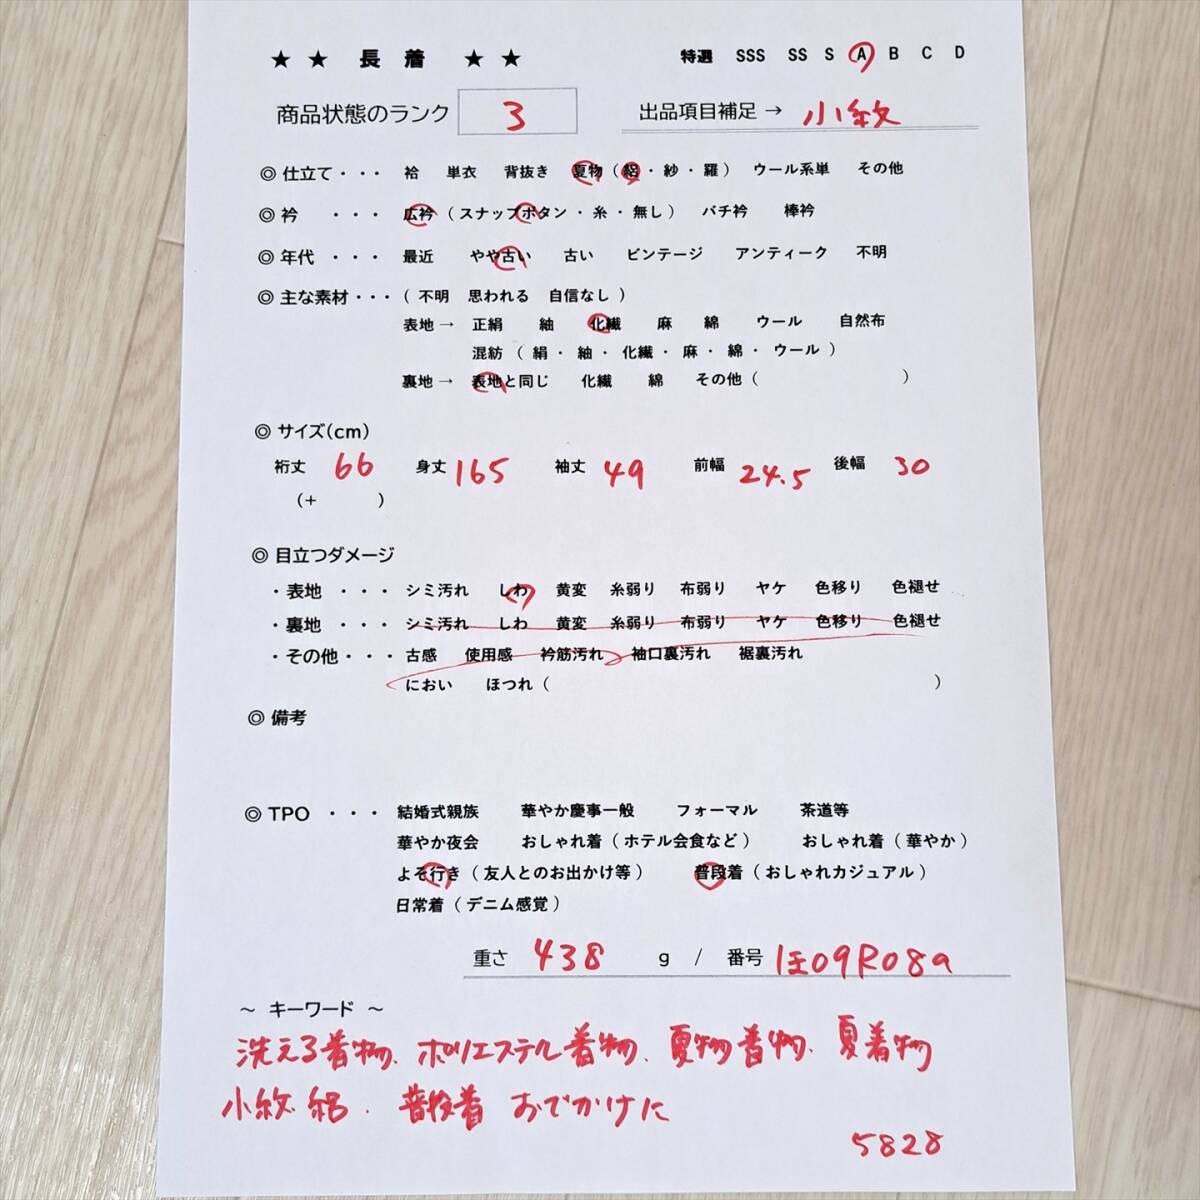 ★ ★ 長 着 ★ ★ 特選 SSS SS S A B C D
商品状態のランク 3 出品項目補足 → 小紋
◎ 仕立て・・・ 袷 単衣 背抜き 夏物 ( 絽・紗・羅 ) ウール系単 その他
◎ 衿 ・・・ 広衿 ( スナップボタン・糸・無し ) バチ衿 棒衿
◎ 年代 ・・・ 最近 やや古い 古い ビンテージ アンティーク 不明
◎ 主な素材・・・ ( 不明 思われる 自信なし )
表地 → 正絹 紬 化繊 麻 綿 ウール 自然布
混紡 ( 絹・紬・化繊・麻・綿・ウール )
裏地 → 表地と同じ 化繊 綿 その他 ( )
◎ サイズ(cm)
裄丈 66 身丈 165 袖丈 49 前幅 24.5 後幅 30
(+ )
◎ 目立つダメージ
・表地 ・・・ シミ汚れ しわ 黄変 糸弱り 布弱り ヤケ 色移り 色褪せ
・裏地 ・・・ シミ汚れ しわ 黄変 糸弱り 布弱り ヤケ 色移り 色褪せ
・その他・・・ 古感 使用感 衿筋汚れ 袖口裏汚れ 裾裏汚れ
におい ほつれ ( )
◎ 備考
◎ TPO ・・・ 結婚式親族 華やか慶事一般 フォーマル 茶道等
華やか夜会 おしゃれ着 ( ホテル会食など ) おしゃれ着 ( 華やか )
よそ行き ( 友人とのお出かけ等 ) 普段着 ( おしゃれカジュアル )
日常着 ( デニム感覚 )
重さ 438 g / 番号 ほ09R08a
～ キーワード ～
洗える着物、ポリエステル着物、夏物着物、夏着物
小紋 絽、普段着 おでかけに
5828